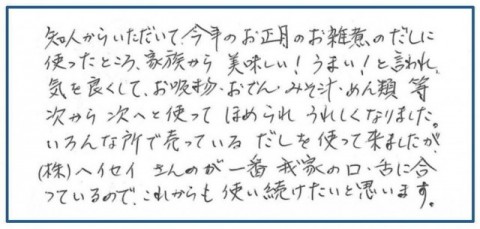 知人からいただいて、今年のお正月のお雑煮のだしに
使ったところ、家族から 美味しい！うまい！と言われ、
気を良くして、お吸物・おでん・みそ汁・めん類 等
次から次へと使って ほめられ うれしくなりました。
いろんな所で売っている だしを使って来ましたが、
(株)ヘイセイ さんのが一番 我家の口・舌に合
っているので、これからも 使い続けたいと思います。